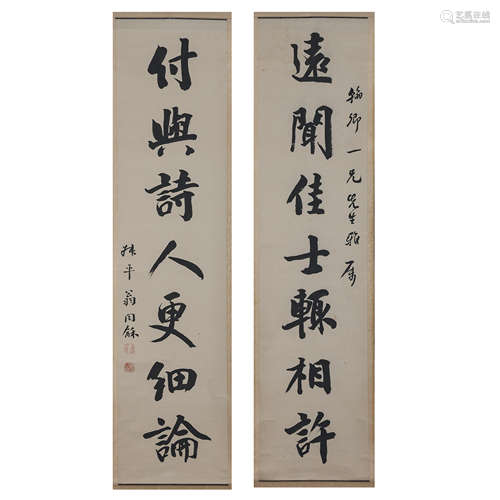 遠聞佳士輒相許
翰卿一兄先生雅屬
付與詩人更細論
叔平翁同龢